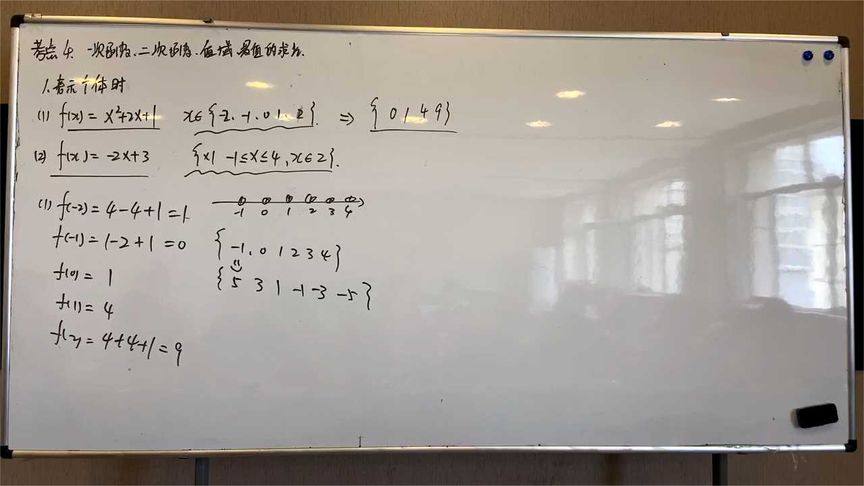 考点4. 一次函数、二次函数、值域、最值的求法.
1.表示个体时
(1) f(x)=x²+2x+1 x∈{-2.-1.0 1.2}. ⇒ {0 1 4 9}
(2) f(x)=-2x+3 {x| -1≤x≤4,x∈Z}.
(1) f(-2)=4-4+1=1 -1 0 1 2 3 4
f(-1)=1-2+1=0 {-1.0 1 2 3 4}
f(0)=1 {5 3 1 -1 -3 -5}
f(1)=4
f(2)=4+4+1=9